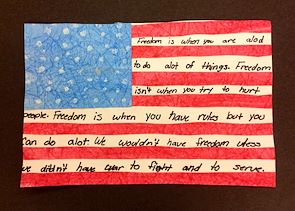 Freedom is when you are alod
to do alot of things. Freedom
isn't when you try to hurt
people. Freedom is when you have rules but you
Can do alot. We wouldn't have freedom unless
we didn't have war to fight and to serve.